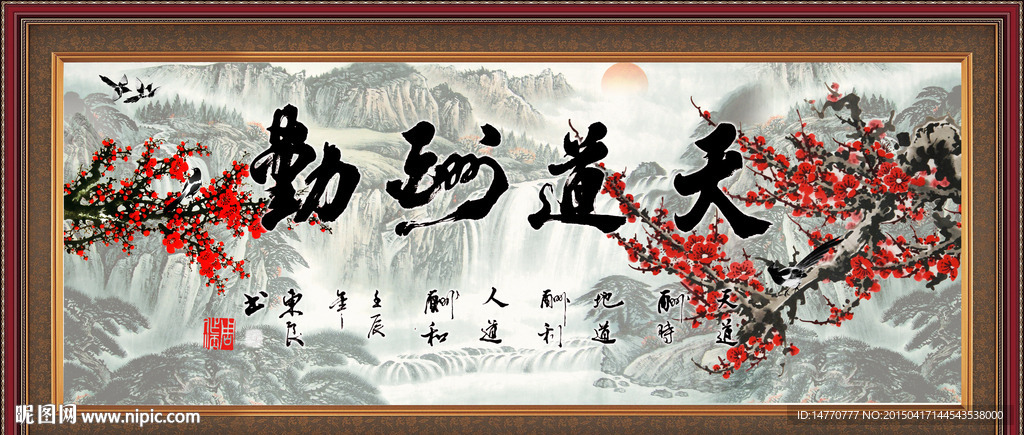 天道酬勤
天道
酬時
地道
酬利
人道
酬和
壬辰
年
東良
书
昵图网 www.nipic.com
ID:14770777 NO:20150417144543538000